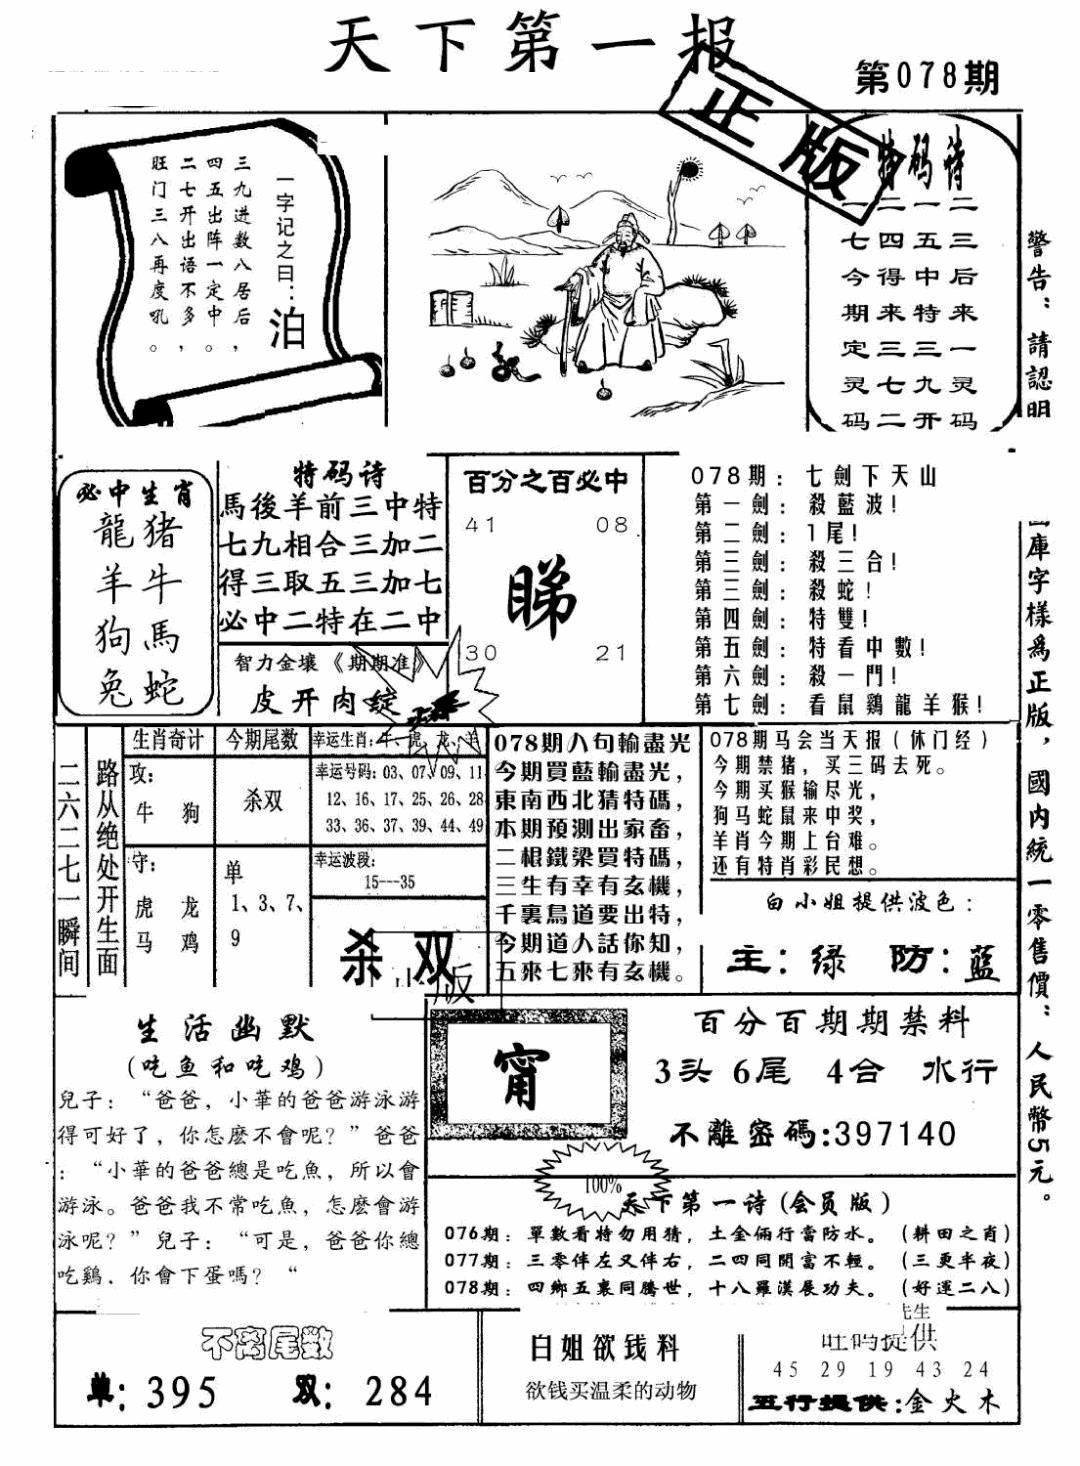 天下第一报
第078期
正版
一字记之曰：泊
三九进数八居后，
四五出阵一定中。
二七开出语不多，
旺门三八再度吼。
特码诗
二三后来一灵码
一五中特三九开
二四得来三七二
一七今期定灵码
警告：請認明
圖庫字樣爲正版，國内統一零售價：人民幣5元。
必中生肖
龍猪
羊牛
狗馬
兔蛇
特码诗
馬後羊前三中特
七九相合三加二
得三取五三加七
必中二特在二中
智力金壤《期期准》
皮开肉绽
百分之百必中
41 08
睇
30 21
078期：七劍下天山
第一劍：殺藍波!
第二劍：1尾!
第三劍：殺三合!
第三劍：殺蛇!
第四劍：特雙!
第五劍：特看中數!
第六劍：殺一門!
第七劍：看鼠鷄龍羊猴!
二六二七一瞬间
路从绝处开生面
生肖奇计
攻：
牛 狗
守：
虎 龙
马 鸡
今期尾数
杀双
单
1、3、7、
9
幸运生肖：牛、虎、龙、羊
幸运号码：03、07、09、11
12、16、17、25、26、28
33、36、37、39、44、49
幸运波段：
15---35
杀双
版
078期八句輸盡光
今期買藍輸盡光，
東南西北猜特碼，
本期預測出家畜，
二根鐵梁買特碼，
三生有幸有玄機，
千裏鳥道要出特，
今期道人話你知，
五來七來有玄機。
078期马会当天报（休门经）
今期禁猪，买三码去死。
今期买猴输尽光，
狗马蛇鼠来中奖，
羊肖今期上台难。
还有特肖彩民想。
白小姐提供波色：
主：绿 防：蓝
生活幽默
(吃鱼和吃鸡)
兒子：“爸爸，小華的爸爸游泳游
得可好了，你怎麽不會呢？”爸爸
：“小華的爸爸總是吃魚，所以會
游泳。爸爸我不常吃魚，怎麽會游
泳呢？”兒子：“可是，爸爸你總
吃鷄．你會下蛋嗎？“
甯
百分百期期禁料
3头 6尾 4合 水行
不離密碼:397140
100%
天下第一诗(会员版)
076期：單數看特勿用猜，土金倆行當防水。（耕田之肖）
077期：三零伴左又伴右，二四同開富不輕。（三更半夜）
078期：四鄉五裏同騰世，十八羅漢展功夫。（好運二八）
不离尾数
单: 395 双: 284
白姐欲钱料
欲钱买温柔的动物
先生
旺码提供
45 29 19 43 24
五行提供:金火木